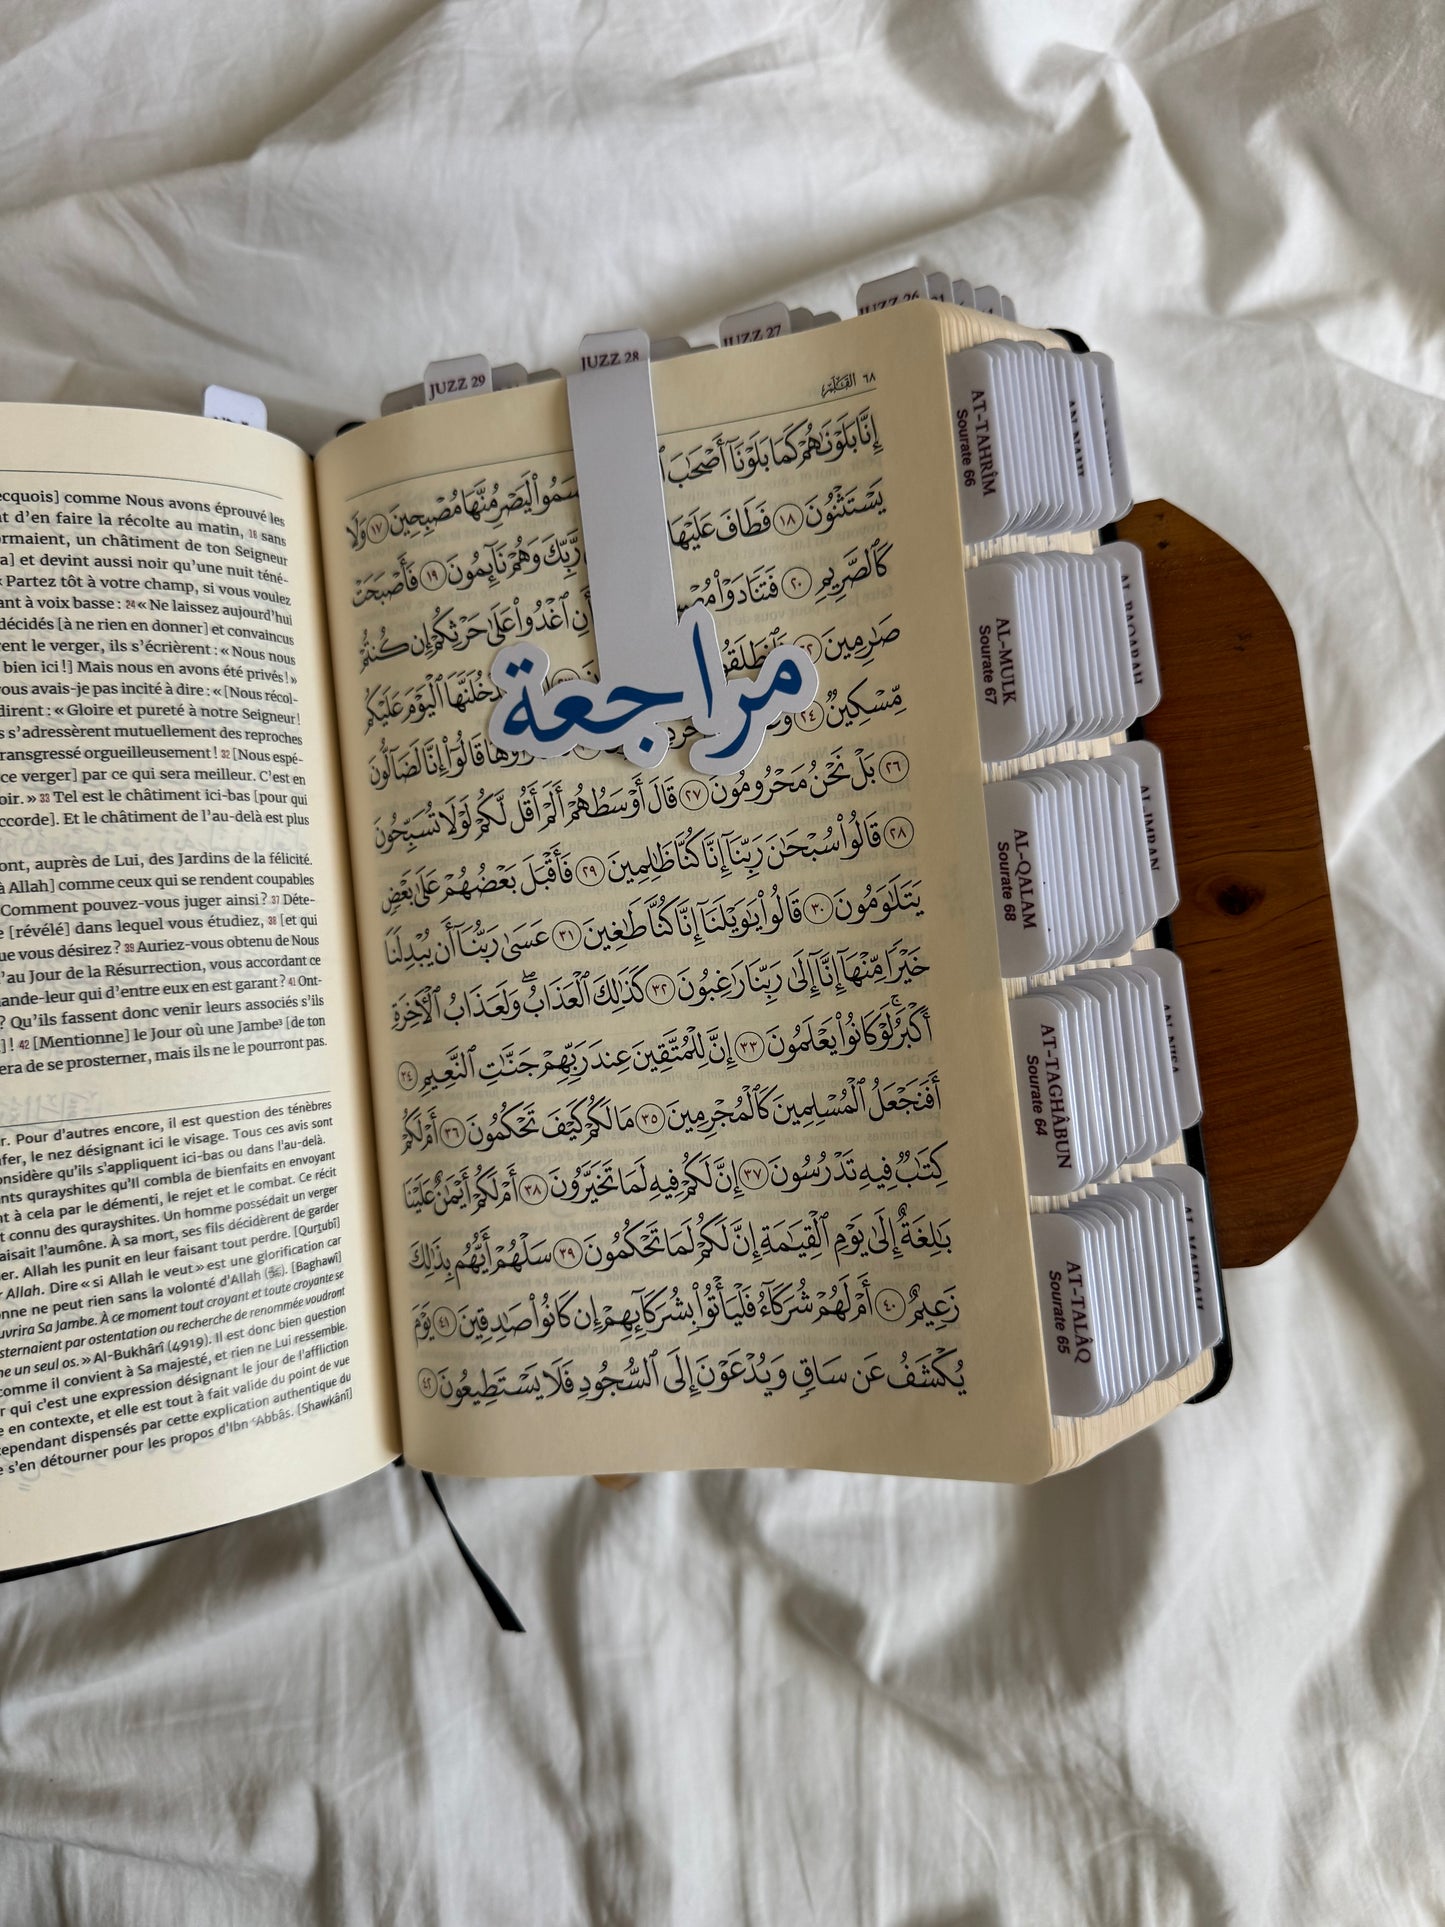 JUZZ 29
JUZZ 28
JUZZ 27
JUZZ 26
٦٨ القلم
إِنَّا بَلَوْنَٰهُمْ كَمَا بَلَوْنَآ أَصْحَٰبَ
لَيَصْرِمُنَّهَا مُصْبِحِينَ ١٧ وَلَا
يَسْتَثْنُونَ ١٨ فَطَافَ عَلَيْهَا
رَّبِّكَ وَهُمْ نَآئِمُونَ ١٩ فَأَصْبَحَتْ
كَٱلصَّرِيمِ ٢٠ فَتَنَادَوْا۟
أَنِ ٱغْدُوا۟ عَلَىٰ حَرْثِكُمْ إِن كُنتُمْ
صَٰرِمِينَ ٢٢
ٱلْيَوْمَ عَلَيْكُم
مراجعة
مِّسْكِينٌ ٢٤
قَالُوٓا۟ إِنَّا لَضَآلُّونَ
٢٦ بَلْ نَحْنُ مَحْرُومُونَ ٢٧ قَالَ أَوْسَطُهُمْ أَلَمْ أَقُل لَّكُمْ لَوْلَا تُسَبِّحُونَ
٢٨ قَالُوا۟ سُبْحَٰنَ رَبِّنَآ إِنَّا كُنَّا ظَٰلِمِينَ ٢٩ فَأَقْبَلَ بَعْضُهُمْ عَلَىٰ بَعْضٍ
يَتَلَٰوَمُونَ ٣٠ قَالُوا۟ يَٰوَيْلَنَآ إِنَّا كُنَّا طَٰغِينَ ٣١ عَسَىٰ رَبُّنَآ أَن يُبْدِلَنَا
خَيْرًا مِّنْهَآ إِنَّآ إِلَىٰ رَبِّنَا رَٰغِبُونَ ٣٢ كَذَٰلِكَ ٱلْعَذَابُ ۖ وَلَعَذَابُ ٱلْءَاخِرَةِ
أَكْبَرُ ۚ لَوْ كَانُوا۟ يَعْلَمُونَ ٣٣ إِنَّ لِلْمُتَّقِينَ عِندَ رَبِّهِمْ جَنَّٰتِ ٱلنَّعِيمِ ٣٤
أَفَنَجْعَلُ ٱلْمُسْلِمِينَ كَٱلْمُجْرِمِينَ ٣٥ مَا لَكُمْ كَيْفَ تَحْكُمُونَ ٣٦ أَمْ لَكُمْ
كِتَٰبٌ فِيهِ تَدْرُسُونَ ٣٧ إِنَّ لَكُمْ فِيهِ لَمَا تَخَيَّرُونَ ٣٨ أَمْ لَكُمْ أَيْمَٰنٌ عَلَيْنَا
بَٰلِغَةٌ إِلَىٰ يَوْمِ ٱلْقِيَٰمَةِ ۙ إِنَّ لَكُمْ لَمَا تَحْكُمُونَ ٣٩ سَلْهُمْ أَيُّهُم بِذَٰلِكَ
زَعِيمٌ ٤٠ أَمْ لَهُمْ شُرَكَآءُ فَلْيَأْتُوا۟ بِشُرَكَآئِهِمْ إِن كَانُوا۟ صَٰدِقِينَ ٤١ يَوْمَ
يُكْشَفُ عَن سَاقٍ وَيُدْعَوْنَ إِلَى ٱلسُّجُودِ فَلَا يَسْتَطِيعُونَ ٤٢
comme Nous avons éprouvé les
d'en faire la récolte au matin, 18 sans
un châtiment de ton Seigneur
et devint aussi noir qu'une nuit téné-
« Partez tôt à votre champ, si vous voulez
à voix basse : 24 « Ne laissez aujourd'hui
décidés [à ne rien en donner] et convaincus
le verger, ils s'écrièrent : « Nous nous
bien ici !] Mais nous en avons été privés ! »
avais-je pas incité à dire : « [Nous récol-
dirent : « Gloire et pureté à notre Seigneur !
s'adressèrent mutuellement des reproches
transgressé orgueilleusement ! 32 [Nous espé-
ce verger] par ce qui sera meilleur. C'est en
» 33 Tel est le châtiment ici-bas [pour qui
Et le châtiment de l'au-delà est plus
auprès de Lui, des Jardins de la félicité.
à Allah] comme ceux qui se rendent coupables
Comment pouvez-vous juger ainsi ? 37 Déte-
[révélé] dans lequel vous étudiez, 38 [et qui
que vous désirez ? 39 Auriez-vous obtenu de Nous
au Jour de la Résurrection, vous accordant ce
qui d'entre eux en est garant ? 41 Ont-
? Qu'ils fassent donc venir leurs associés s'ils
! 42 [Mentionne] le Jour où une Jambe³ [de ton
de se prosterner, mais ils ne le pourront pas.
Pour d'autres encore, il est question des ténèbres
le nez désignant ici le visage. Tous ces avis sont
considère qu'ils s'appliquent ici-bas ou dans l'au-delà.
qurayshites qu'Il combla de bienfaits en envoyant
à cela par le démenti, le rejet et le combat. Ce récit
connu des qurayshites. Un homme possédait un verger
faisait l'aumône. À sa mort, ses fils décidèrent de garder
Allah les punit en leur faisant tout perdre. [Qurtubî]
Allah. Dire « si Allah le veut » est une glorification car
ne peut rien sans la volonté d'Allah (ﷻ). [Baghawî]
Sa Jambe. À ce moment tout croyant et toute croyante se
par ostentation ou recherche de renommée voudront
un seul os. » Al-Bukhârî (4919). Il est donc bien question
comme il convient à Sa majesté, et rien ne Lui ressemble.
qui c'est une expression désignant le jour de l'affliction
en contexte, et elle est tout à fait valide du point de vue
cependant dispensés par cette explication authentique du
s'en détourner pour les propos d'Ibn ʿAbbâs. [Shawkânî]
AT-TAHRÎM
Sourate 66
AL-MULK
Sourate 67
AL-QALAM
Sourate 68
AT-TAGHÂBUN
Sourate 64
AT-TALÂQ
Sourate 65